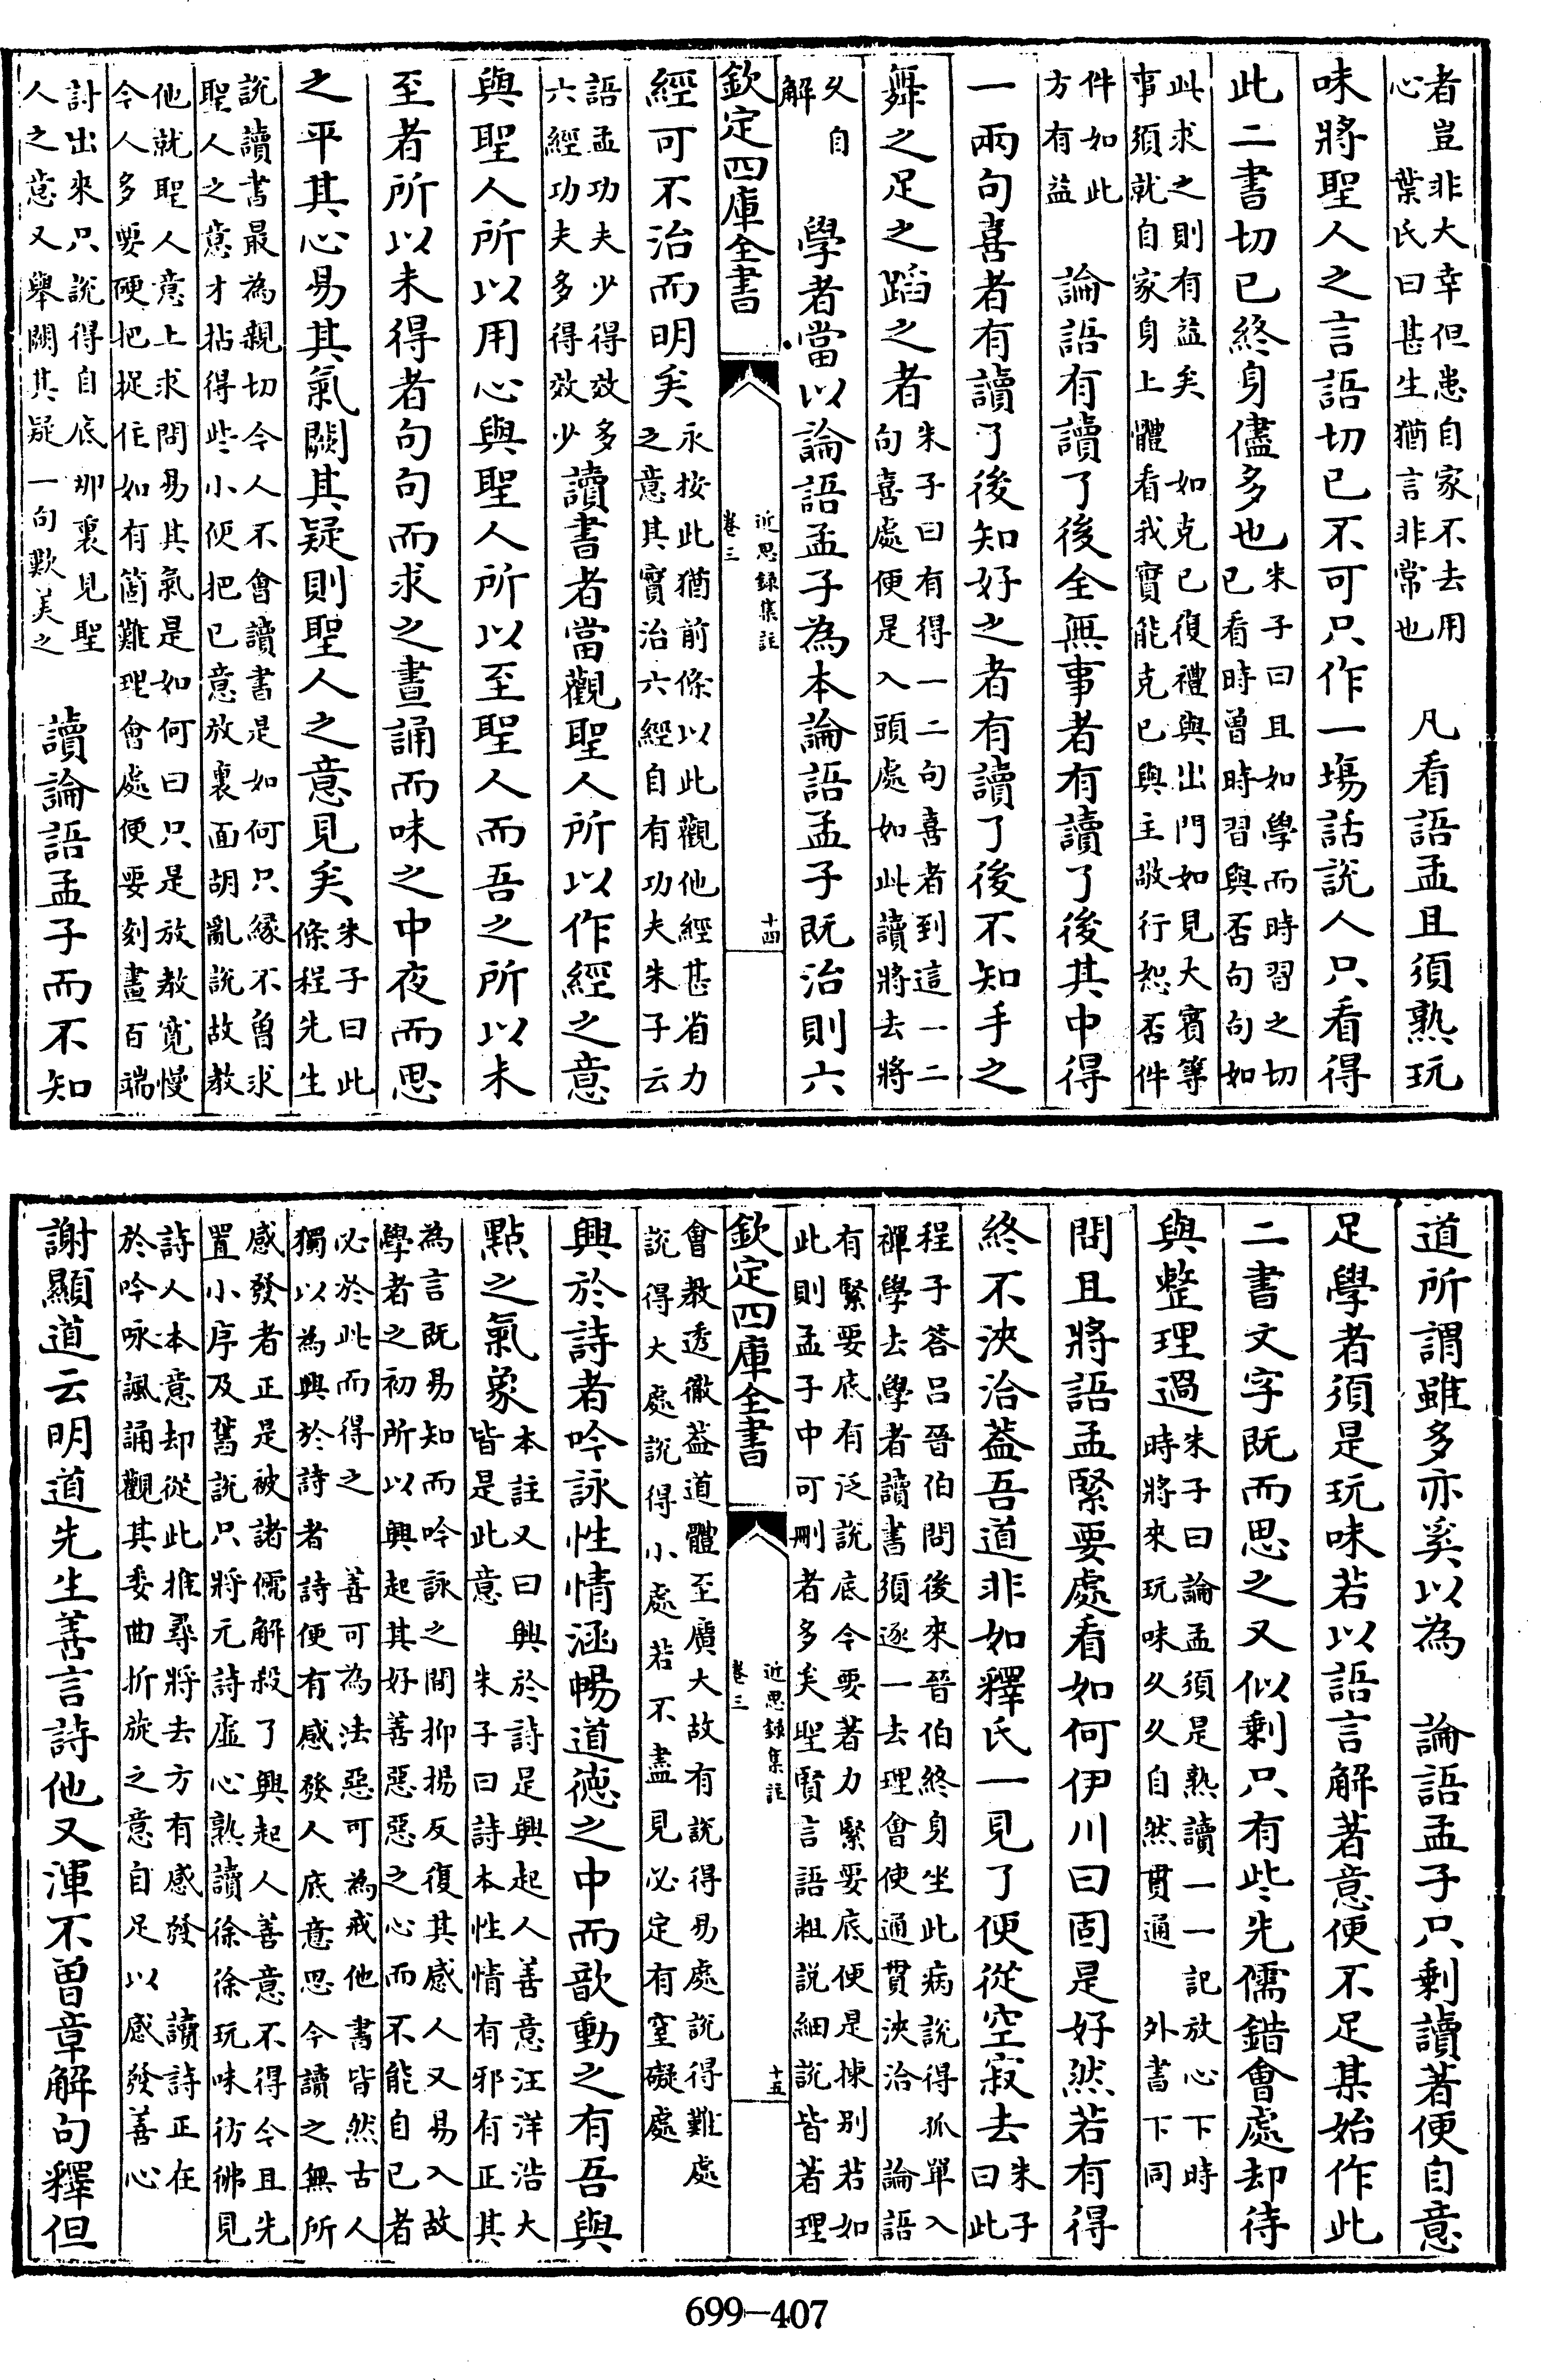 者豈非大幸但患自家不去用
心　葉氏曰甚生猶言非常也
凡看語孟且須熟玩
味將聖人之言語切己不可只作一塲話說人只看得
此二書切己終身儘多也
朱子曰且如學而時習之切
己看時曾時習與否句句如
此求之則有益矣　如克己復禮與出門如見大賓等
事須就自家身上體看我實能克己與主敬行恕否件
件如此
方有益
論語有讀了後全無事者有讀了後其中得
一兩句喜者有讀了後知好之者有讀了後不知手之
舞之足之蹈之者
朱子曰有得一二句喜者到這一二
句喜處便是入頭處如此讀將去將
久自
解
學者當以論語孟子為本論語孟子既治則六
欽定四庫全書
近思錄集註
卷三
十四
經可不治而明矣
永按此猶前條以此觀他經甚省力
之意其實治六經自有功夫朱子云
語孟功夫少得效多
六經功夫多得效少
讀書者當觀聖人所以作經之意
與聖人所以用心與聖人所以至聖人而吾之所以未
至者所以未得者句句而求之晝誦而味之中夜而思
之平其心易其氣闕其疑則聖人之意見矣
朱子曰此
條程先生
說讀書最為親切今人不會讀書是如何只緣不曾求
聖人之意才拈得些小便把己意放裏面胡亂說故教
他就聖人意上求問易其氣是如何曰只是放教寛慢
今人多要硬把捉住如有箇難理會處便要刻畫百端
討出來只說得自底那裏見聖
人之意又舉闕其疑一句歎美之
讀論語孟子而不知
道所謂雖多亦奚以為　論語孟子只剩讀著便自意
足學者須是玩味若以語言解著意便不足某始作此
二書文字既而思之又似剩只有些先儒錯會處却待
與整理過
朱子曰論孟須是熟讀一一記放心下時
時將來玩味久久自然貫通　外書下同
問且將語孟緊要處看如何伊川曰固是好然若有得
終不浹洽葢吾道非如釋氏一見了便從空寂去
朱子
曰此
程子答呂晉伯問後來晉伯終身坐此病說得孤單入
禪學去學者讀書須逐一去理會使通貫浹洽　論語
有緊要底有泛說底今要著力緊要底便是揀别若如
此則孟子中可刪者多矣聖賢言語粗說細說皆著理
欽定四庫全書
近思錄集註
卷三
十五
會教透徹葢道體至廣大故有說得易處說得難處
說得大處說得小處若不盡見必定有窒礙處
興於詩者吟詠性情涵暢道徳之中而歆動之有吾與
點之氣象
本註又曰興於詩是興起人善意汪洋浩大
皆是此意　朱子曰詩本性情有邪有正其
為言既易知而吟詠之間抑揚反復其感人又易入故
學者之初所以興起其好善惡惡之心而不能自已者
必於此而得之　善可為法惡可為戒他書皆然古人
獨以為興於詩者詩便有感發人底意思今讀之無所
感發者正是被諸儒解殺了興起人善意不得今且先
置小序及舊說只將元詩虛心熟讀徐徐玩味彷彿見
詩人本意却從此推尋將去方有感發　讀詩正在
於吟咏諷誦觀其委曲折旋之意自足以感發善心
謝顯道云明道先生善言詩他又渾不曾章解句釋但
699-407